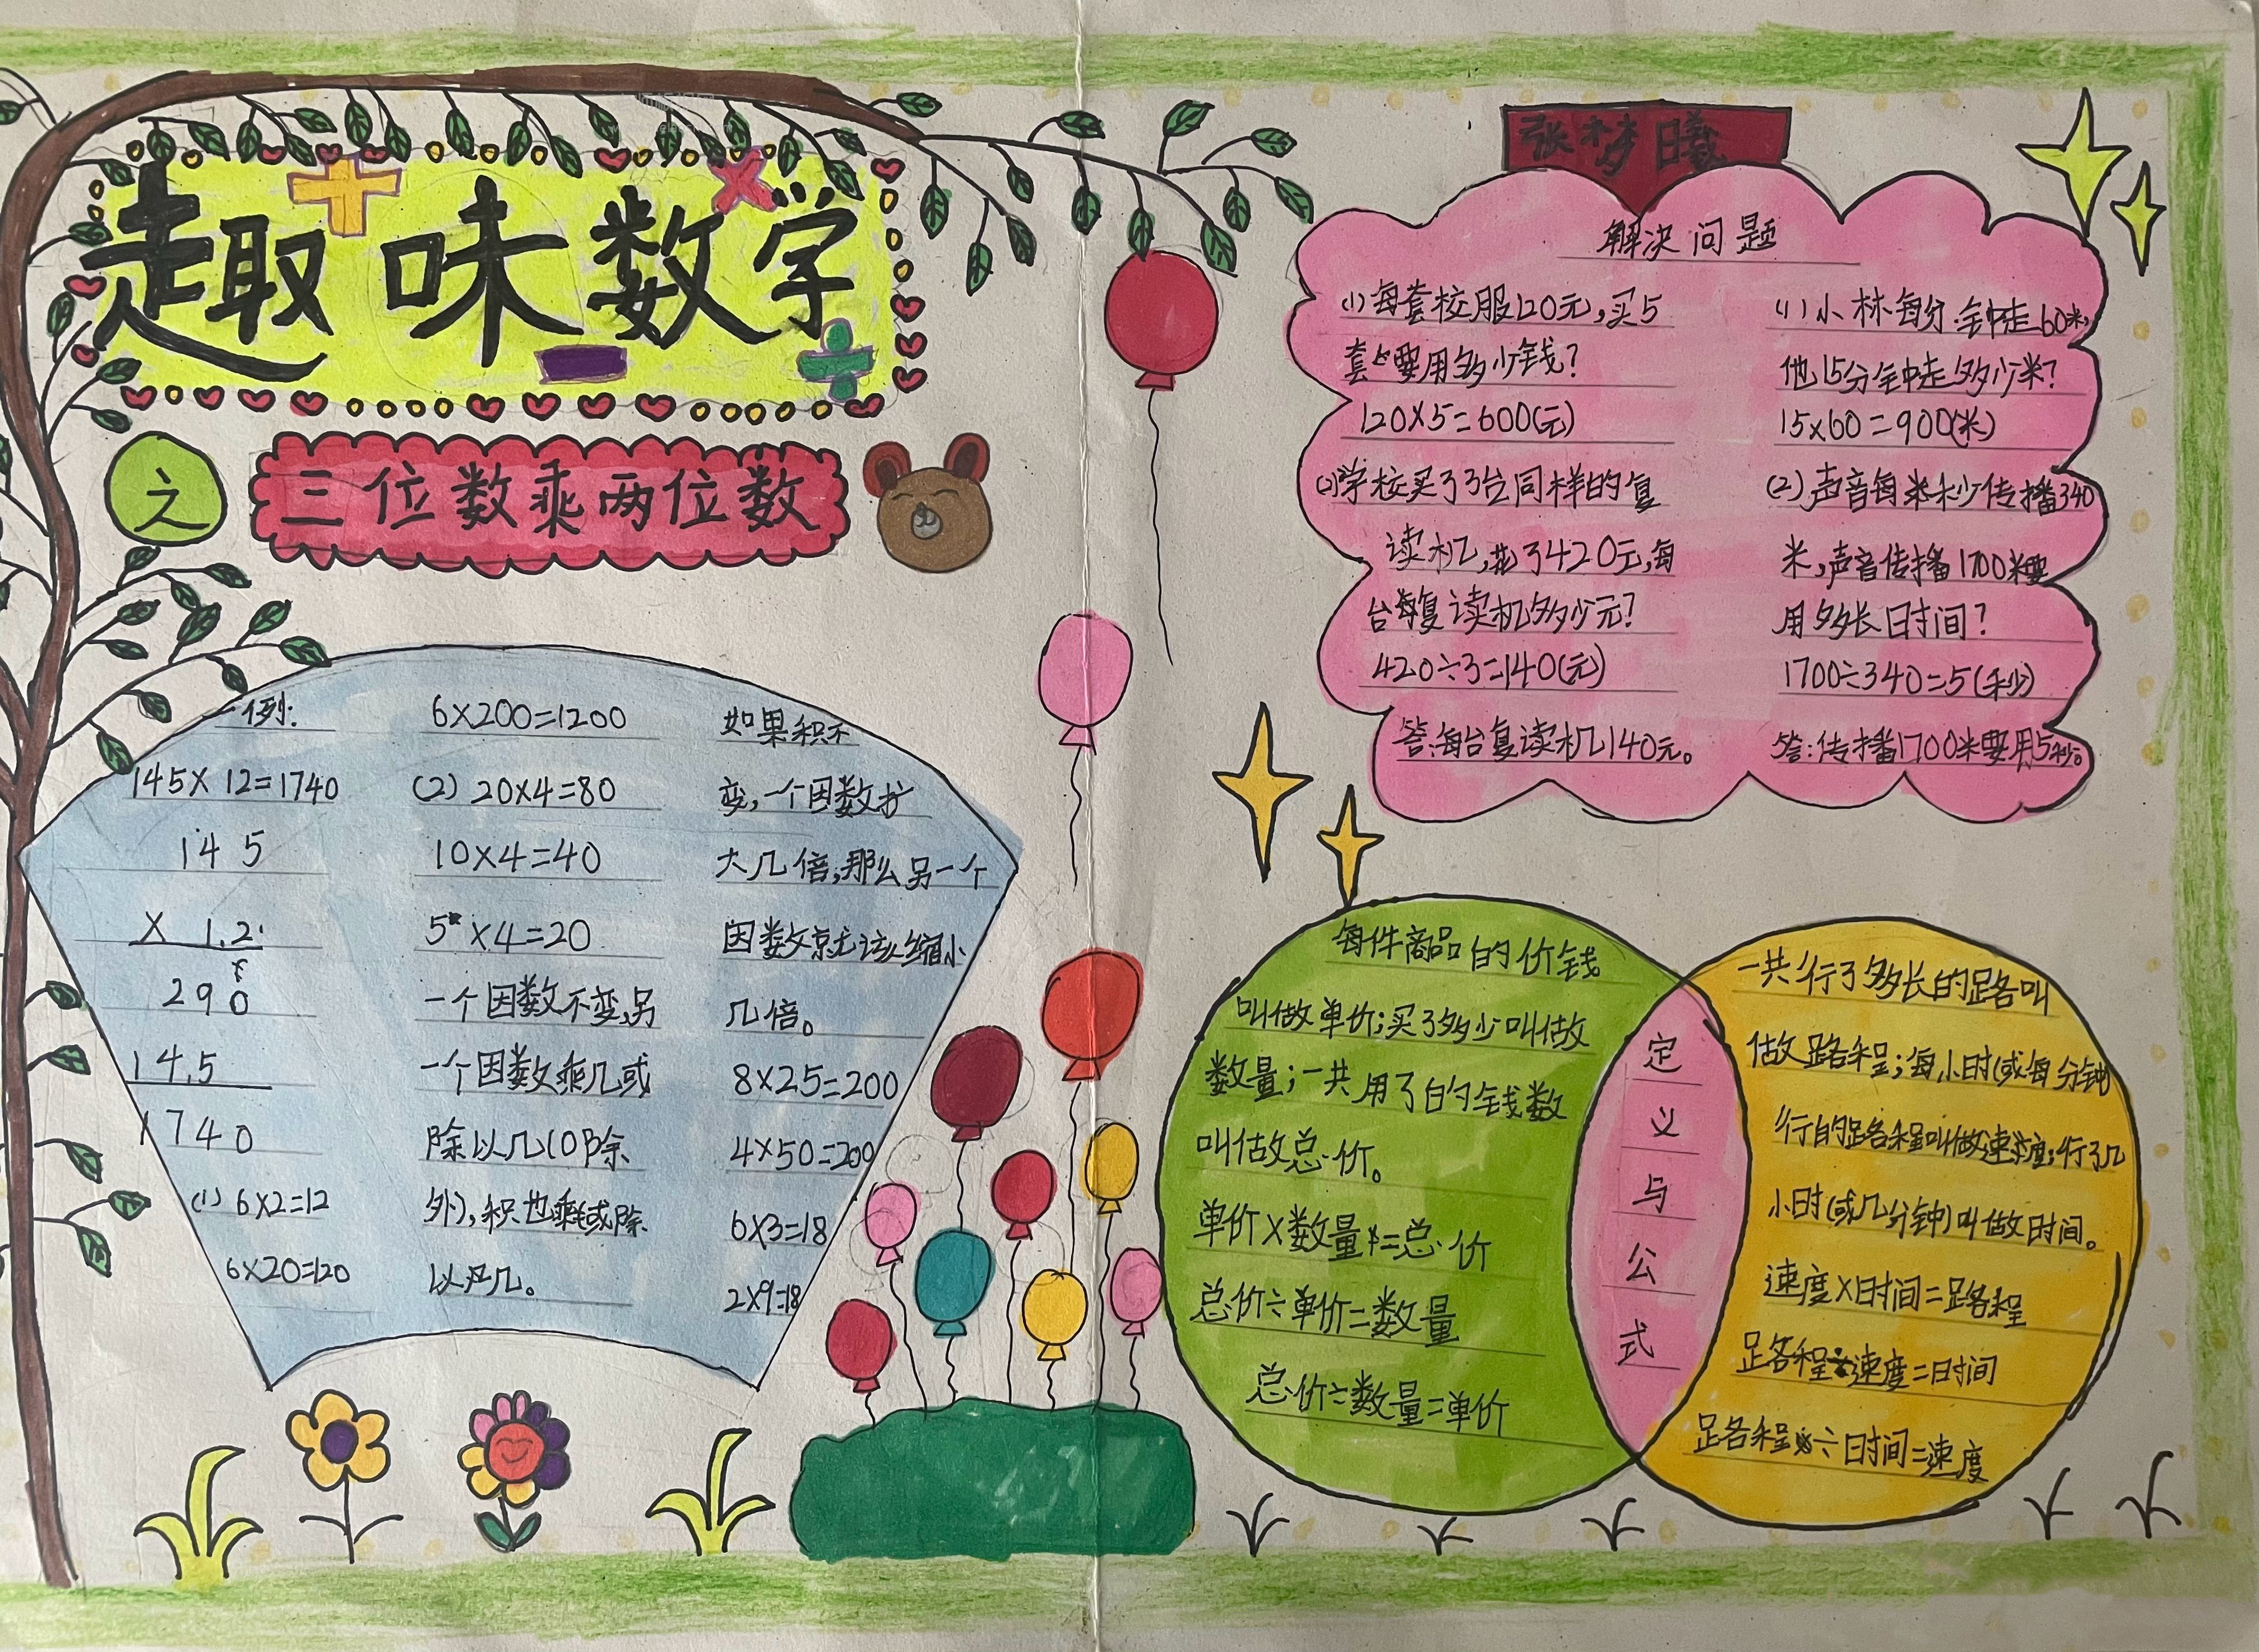 趣味数学
之
三位数乘两位数
例:
145×12=1740
145
× 12
290
145
1740
(1) 6×2=12
6×20=120
6×200=1200
(2) 20×4=80
10×4=40
5×4=20
一个因数不变,另
一个因数乘几或
除以几(0除
外),积也乘或除
以几。
如果积不
变,一个因数扩
大几倍,那么另一个
因数就该缩小
几倍。
8×25=200
4×50=200
6×3=18
2×9=18
张梦曦
解决问题
(1)每套校服120元,买5
套要用多少钱?
120×5=600(元)
(2)学校买了3台同样的复
读机,花了420元,每
台复读机多少元?
420÷3=140(元)
答:每台复读机140元。
(1)小林每分钟走60米,
他15分钟走多少米?
15×60=900(米)
(2)声音每秒传播340
米,声音传播1700米要
用多长时间?
1700÷340=5(秒)
答:传播1700米要用5秒。
每件商品的价钱
叫做单价;买了多少叫做
数量;一共用了的钱数
叫做总价。
单价×数量=总价
总价÷单价=数量
总价÷数量=单价
定
义
与
公
式
一共行了多长的路叫
做路程;每小时(或每分钟)
行的路程叫做速度;行了几
小时(或几分钟)叫做时间。
速度×时间=路程
路程÷速度=时间
路程÷时间=速度